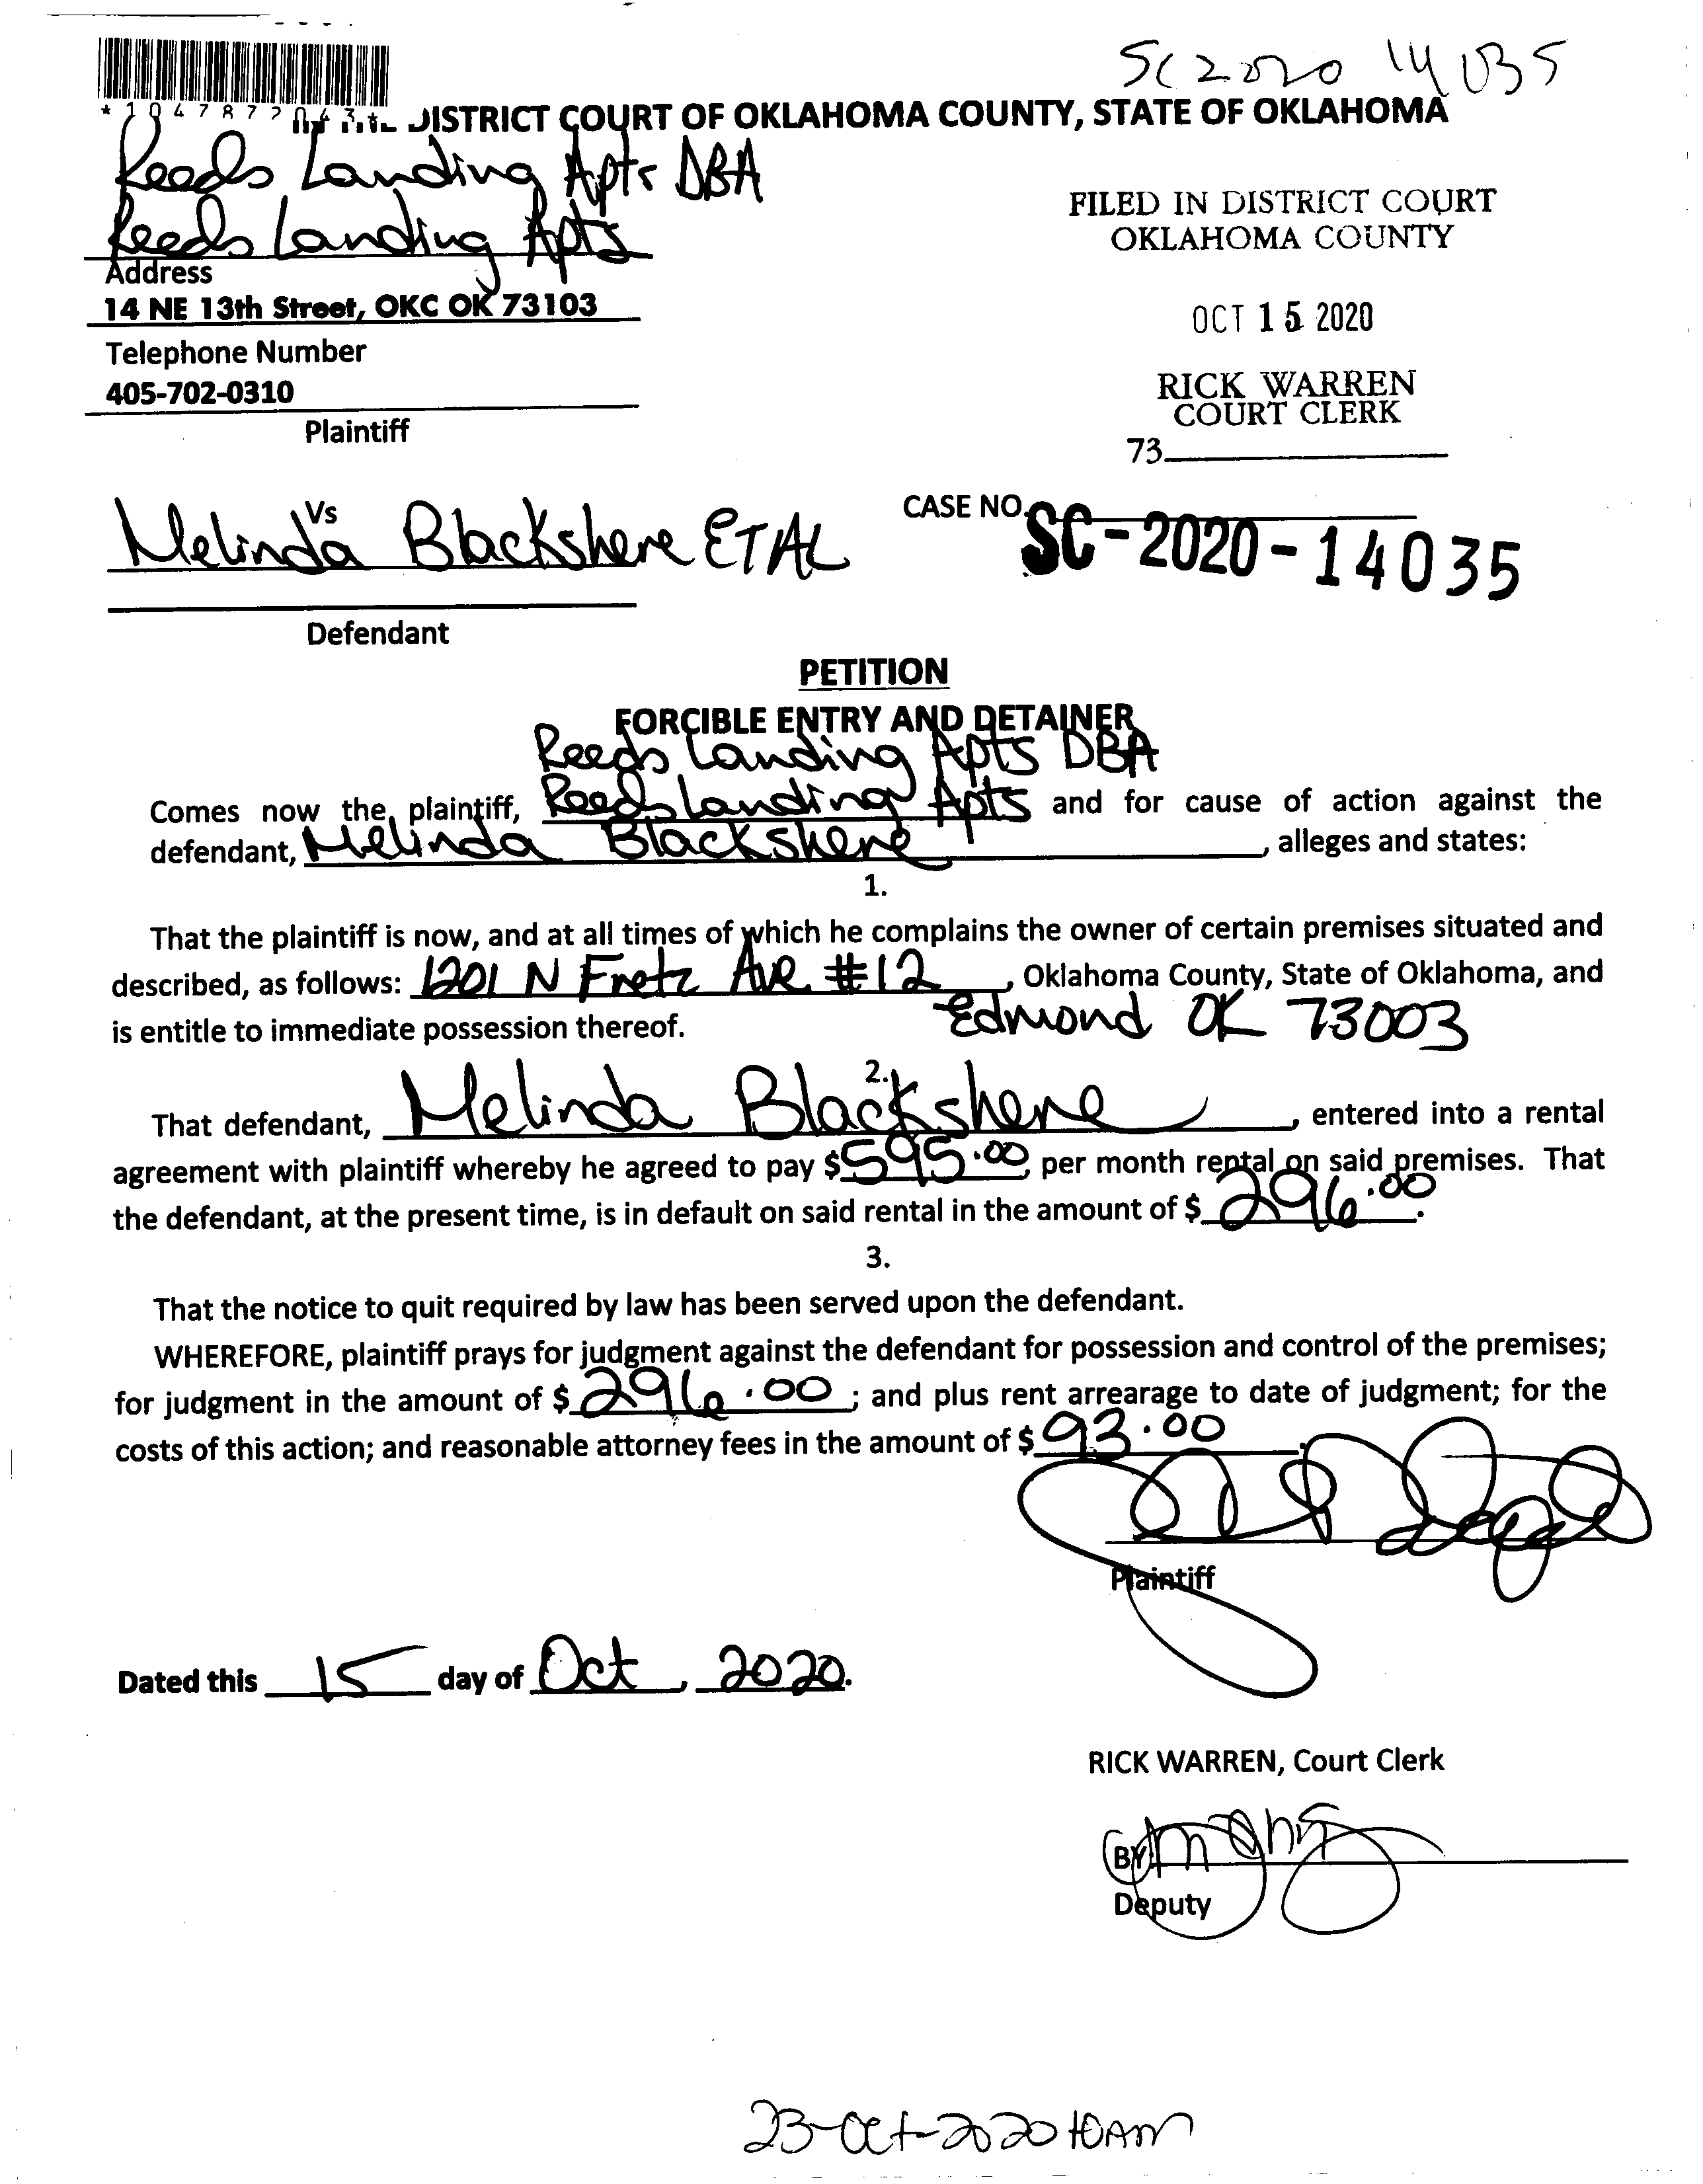 SC2020 14035
*1047872063*
DISTRICT COURT OF OKLAHOMA COUNTY, STATE OF OKLAHOMA
Reeds Landing Apts DBA
Reeds Landing Apts
Address
14 NE 13th Street, OKC OK 73103
Telephone Number
405-702-0310
Plaintiff
FILED IN DISTRICT COURT
OKLAHOMA COUNTY
OCT 15 2020
RICK WARREN
COURT CLERK
73
Vs
Melinda Blackshere ETAL
Defendant
CASE NO.
SC-2020-14035
PETITION
FORCIBLE ENTRY AND DETAINER
Reeds Landing Apts DBA
Comes now the plaintiff, Reeds Landing Apts and for cause of action against the
defendant, Melinda Blackshere, alleges and states:
1.
That the plaintiff is now, and at all times of which he complains the owner of certain premises situated and
described, as follows: 1201 N Fretz Ave #12, Oklahoma County, State of Oklahoma, and
Edmond OK 73003
is entitle to immediate possession thereof.
2.
That defendant, Melinda Blackshere, entered into a rental
agreement with plaintiff whereby he agreed to pay $595.00 per month rental on said premises. That
the defendant, at the present time, is in default on said rental in the amount of $ 296.00.
3.
That the notice to quit required by law has been served upon the defendant.
WHEREFORE, plaintiff prays for judgment against the defendant for possession and control of the premises;
for judgment in the amount of $ 296.00; and plus rent arrearage to date of judgment; for the
costs of this action; and reasonable attorney fees in the amount of $ 93.00.
Plaintiff
Dated this 15 day of Oct, 2020.
RICK WARREN, Court Clerk
BY
Deputy
23-Oct-2020 10AM